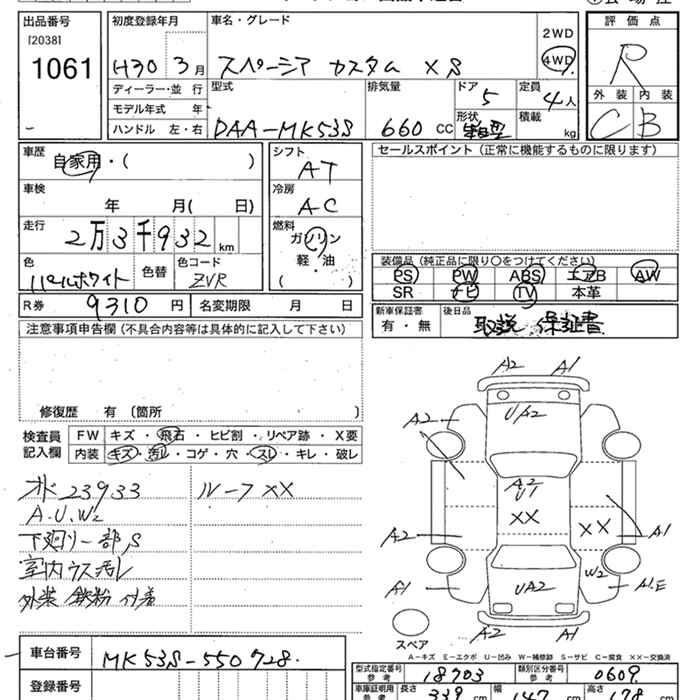 出品番号
[2038]
1061
初度登録年月
H30 3月
車名・グレード
スペーシア カスタム XS
2WD
4WD
評価点
R
外装 内装
C B
ディーラー・並行
モデル年式 年
ハンドル 左・右
型式
DAA-MK53S
排気量
660 CC
ドア
5
形状
定員
4人
積載
kg
車歴
自家用・( )
車検
年 月( 日)
走行
2万3千932 km
色
パールホワイト
色替
色コード
ZVR
R券 9310 円
名変期限 月 日
シフト
AT
冷房
A-C
燃料
ガソリン
軽・油
( )
セールスポイント(正常に機能するものに限ります)
装備品(純正品に限り○をつけてください)
PS PW ABS エアB AW
SR ナビ TV 本革
新車保証書
有・無
後日品
取説 保証書
注意事項申告欄(不具合内容等は具体的に記入して下さい)
修復歴 有 〔箇所 〕
検査員
記入欄
FW キズ・飛石・ヒビ割・リペア跡・X要
内装 キズ・汚れ・コゲ・穴・スレ・キレ・破レ
オド 23933
A.U.W2
下廻り一部S
室内ウス汚レ
外装 鉄粉 付着
ルーフXX
A2 A1
U/A2
A2
A2
U1
XX
XX
A2
A1
W2
A1
UA2
A1.E
A2 A1
スペア
A-キズ E-エクボ U-凹み W-補修跡 S-サビ C-腐食 XX-交換済
車台番号 MK53S-550728
登録番号
型式指定番号
参考
18703
類別区分番号
参考
0609
車庫証明用
参考
長さ
339 cm
幅
147 cm
高さ
178 cm